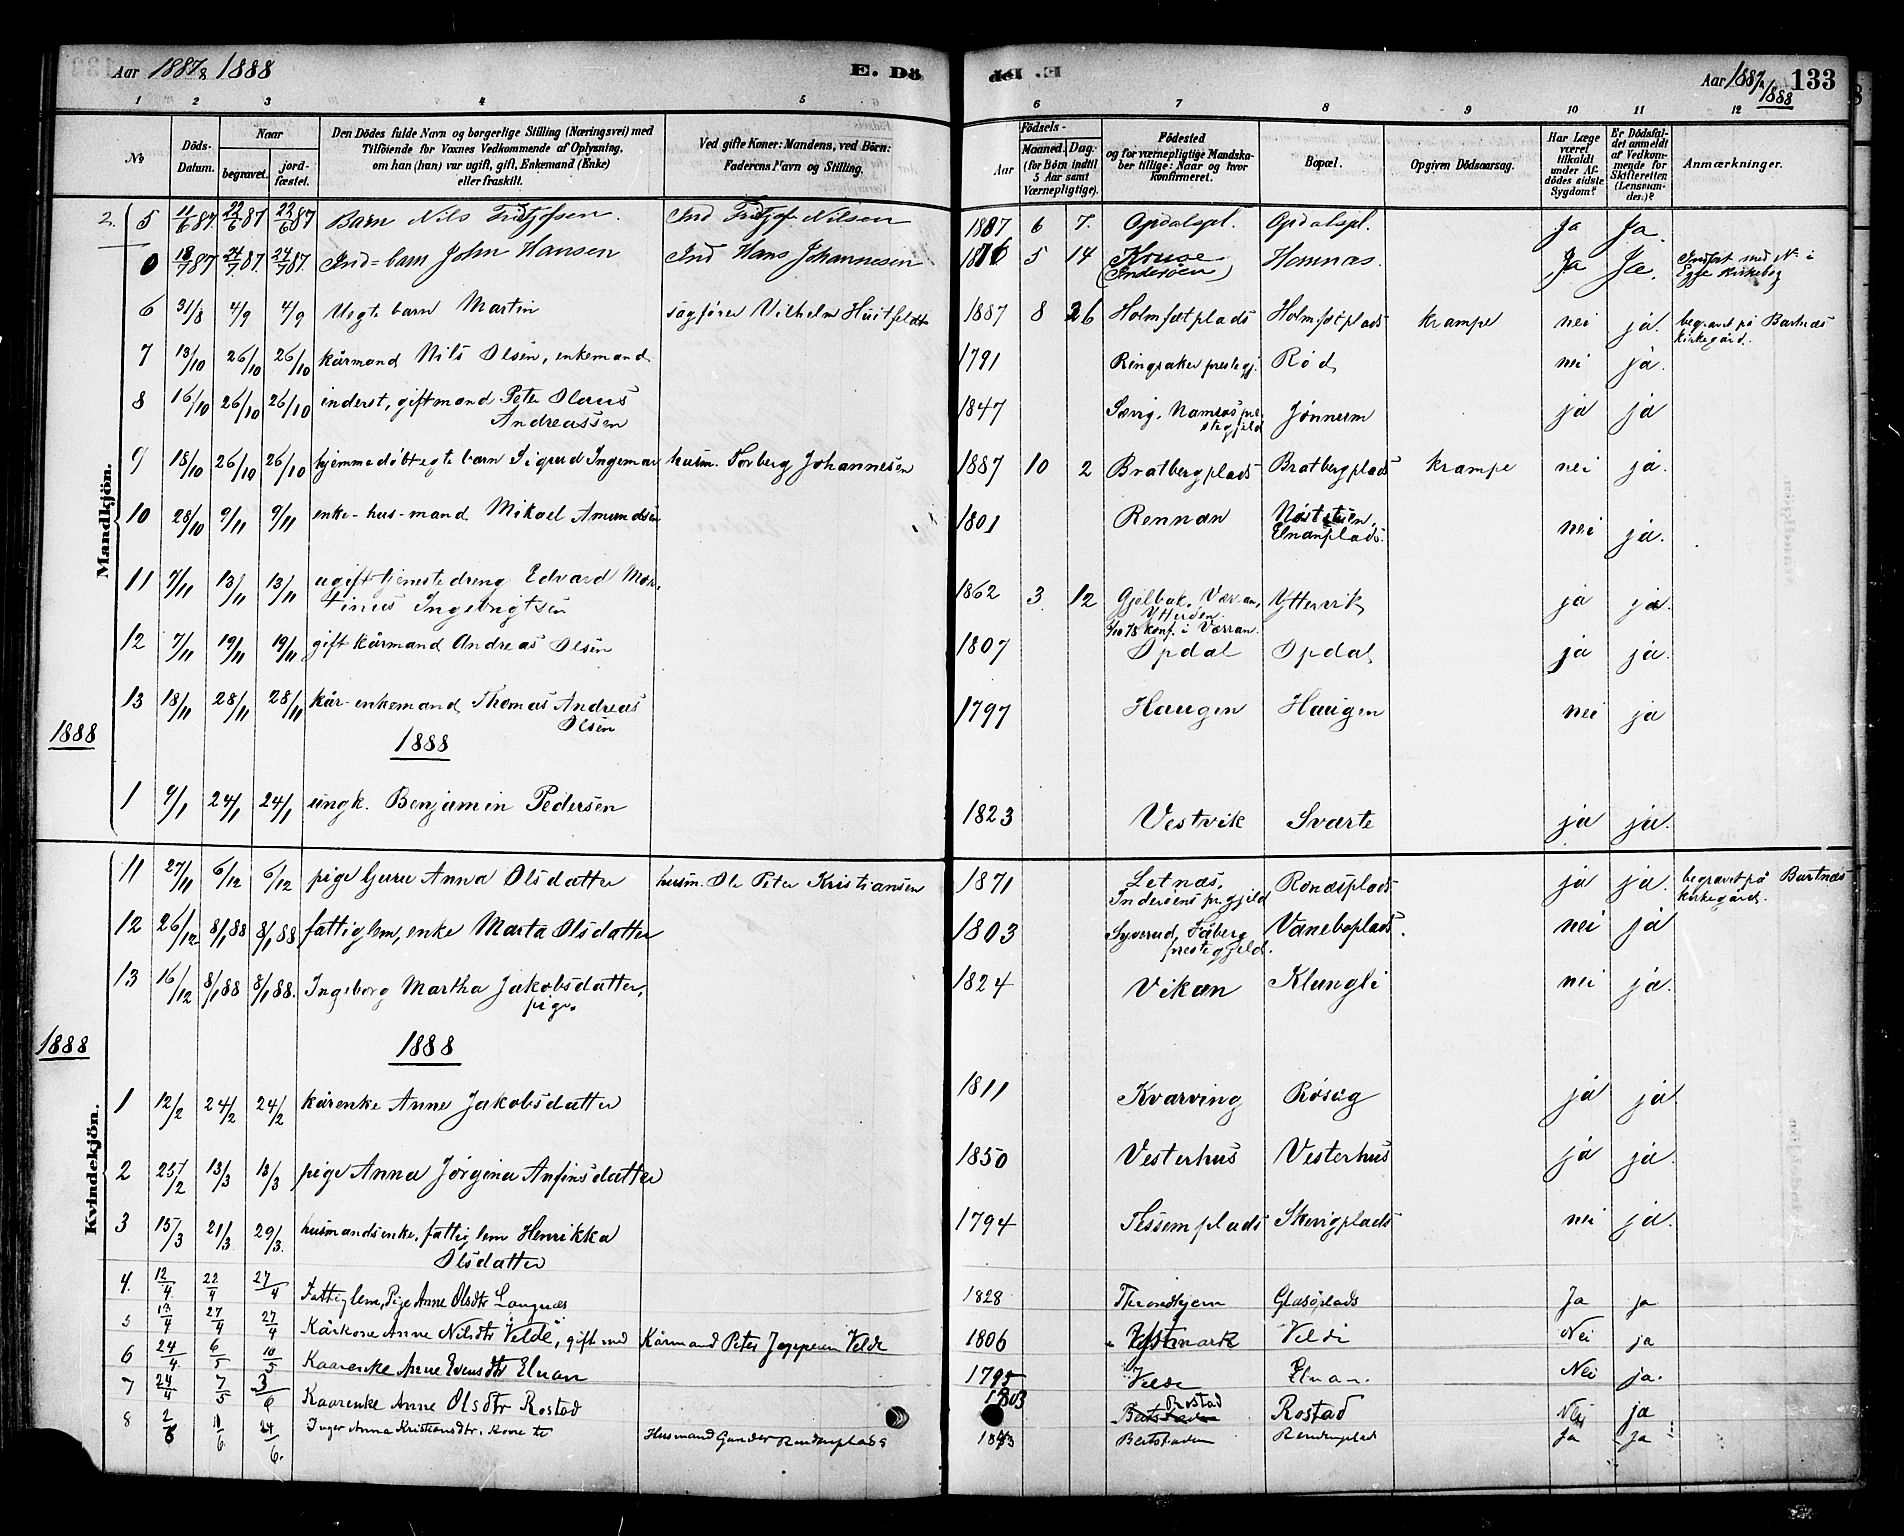 Aar 1887 & 1888
E. Dö
de. E.
Aar 1887 & 1888
133
1 2 3 4 5 6 7 8 9 10 11 12
No
Döds-Datum.
Naar
begravet.
jord-fæstet.
Den Dödes fulde Navn og borgerlige Stilling (Næringsvei) med
Tilföiende for Voxnes Vedkommende af Oplysning,
om han (hun) var ugift, gift, Enkemand (Enke)
eller fraskilt.
Ved gifte Koner: Mandens, ved Börn:
Faderens Navn og Stilling.
Födsels-
Aar
Maaned. Dag.
(for Börn indtil
5 Aar samt
Værnepligtige).
Födested
og for værnepligtige Mandska-
ber tillige: Naar og hvor
konfirmeret.
Bopæl.
Opgiven Dödsaarsag.
Har Læge
været
tilkaldt
under Af-
dödes sidste
Sygdom?
Er Dödsfal-
det anmeldt
af Vedkom-
mende for
Skifteretten
(Lensman-
den)?
Anmærkninger.
Mandkjön.
2. 5 11/6 87. 22/6 87 22/6 87 Barn Nils Fritjofsen. Ind Fritjof Nilsen 1887 6 7. Opdalspl. Opdalspl. Ja Ja.
0 18/7 87 24/7 87. 24/7 87. Ind=barn John Hansen Ind Hans Johannesen 1886 5 14 (Inderøen) Homnæs. Ja Ja. Indført med No i
Egge Kirkebog
6 31/8 4/9 4/9 Uegte barn Martin sagfører Vilhelm Huitfeldt 1887 8 26 Holmsetplads Holmsetplads krampe nei ja. begravet på Bartnæs
kirkegård.
7 13/10 26/10 26/10 kårmand Nils Olsen, enkemand 1791 Ringsaker prestegj. Rød nei ja.
8 16/10 26/10 26/10 inderst, giftmand Peter Olaus
Andreassen 1847 Sævig, Namsos pre-
stegjeld Jønnem ja ja
9 18/10 26/10 26/10 hjemmedøbt egte barn Sigurd Ingemar husm. Torberg Johannesen 1887 10 2 Bratbergplads Bratbergplads krampe nei ja.
10 28/10 9/11 9/11 enke-hus-mand Mikael Amundsen 1801 Rennan
Elnanplads. nei ja.
11 7/11 13/11 13/11 ugift tjenestedreng Edvard Mar-
tinus Ingebrigtsen 1862 3 12 Gjelbak, Værran,
Ytterøen.
konf. i Værran. Yttervik ja ja.
12 7/11 19/11 19/11 gift kårmand Andreas Olsen 1807 Opdal Opdal ja ja.
13 18/11 28/11 28/11 kår-enkemand Thomas Andreas
Olsen 1797 Haugen Haugen nei ja
1888 1888
1 9/1 24/1 24/1 ungk. Benjamin Pedersen 1823 Vestvik Svarte ja ja.
Kvindekjön.
11 27/11 6/12 6/12 pige Guru Anna Olsdatter husm. Ole Peter Kristiansen 1871 Letnæs,
Inderøens pr.gjeld Ronæsplads ja ja. begravet på Bartnæs
kirkegård.
12 26/12 8/1 88 8/1 88 fattiglem, enke Marta Olsdatter 1803 Syverud,
prestegjeld. Vaneboplads. nei ja
13 16/12 8/1 88 8/1 88. Ingeborg Martha Jakobsdatter,
pige. 1824 Vikan Klungli nei ja.
1888 1888
1 12/2 24/2 24/2 kårenke Anne Jakobsdatter 1811 Kvarving Røseg ja ja.
2 25/2 13/3 13/3 pige Anna Jørgina Anfinsdatter 1850 Vesterhus Vesterhus ja ja.
3 15/3 21/3 29/3. husmandsenke, fattiglem Henrikka
Olsdatter 1794 Tessemplads Skevigplads nei ja.
4. 12/4 22/4 27/4 Fattiglem, Pige Anne Olsdtr Langnæs 1828 Throndhjem Glasöplads Ja ja
5 13/4 27/4 27/4 Kårkone Anne Nilsdtr Velde, gift med Kårmand Peter Jeppesen Velde 1806 Vestmark Velde Nei ja
6 24/4. 6/5 10/5 Kaarenke Anne Evensdtr Elnan 1795 Velde Elnan. Nei ja.
7 24/4 7/5 3/6 Kaarenke Anne Olsdtr Rostad 1803 Rostad Rostad Nei ja
8 2/6 11/6 24/6. Inger Anna Kristiansdtr. Husmand Gunder Rendenplads Bartstaden Rendenplad Ja Ja